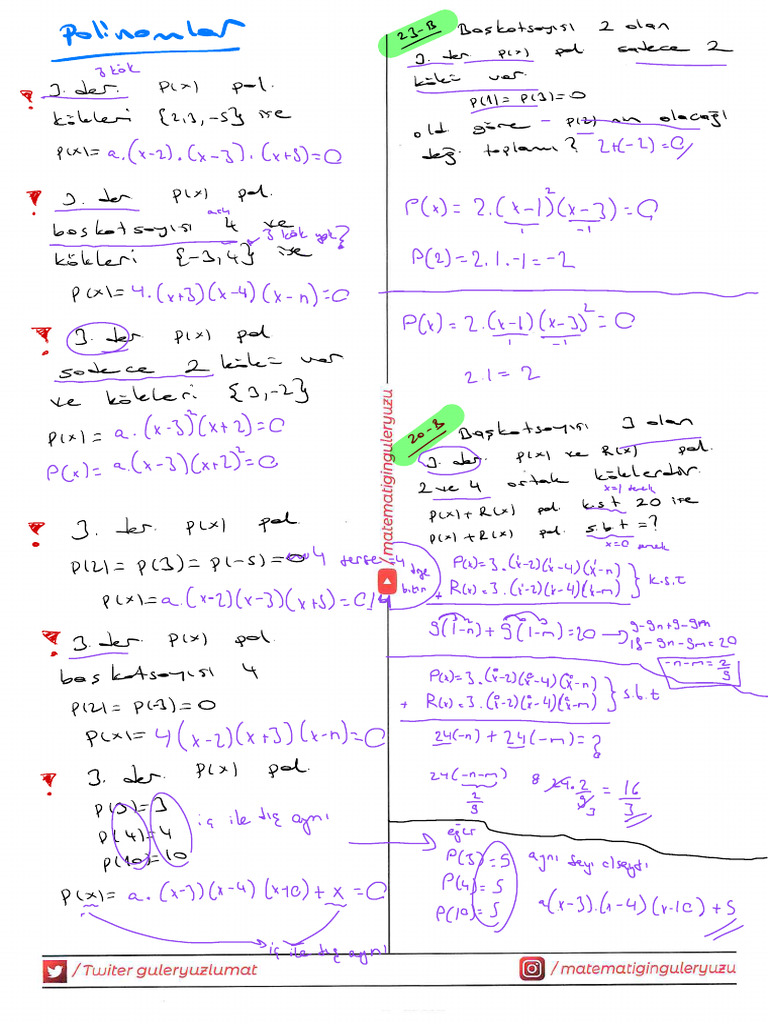 Polinomlar
3 kök
3. der. P(x) pol.
kökleri {2,3,-5} ise
P(x)= a.(x-2).(x-3).(x+5)=0
3. der P(x) pol.
başkatsayısı 4 ve
3 kök yok?
kökleri {-3,4} ise
P(x)= 4.(x+3)(x-4)(x-n)=0
3. der P(x) pol
sadece 2 kökü var
ve kökleri {3,-2}
P(x)= a.(x-3)²(x+2)=0
P(x)= a.(x-3)(x+2)²=0
3. der. P(x) pol
P(2)= P(3)= P(-5)=0
P(x)=a.(x-2)(x-3)(x+5)=0
3. der. P(x) pol.
baş katsayısı 4
P(2)= P(-3)=0
P(x)= 4(x-2)(x+3)(x-n)=0
3. der. P(x) pol.
P(3)=3
P(4)=4
P(10)=10
iç ile dış aynı
P(x)= a.(x-3)(x-4)(x-10)+x=0
iç ile dış aynı
23-B Başkatsayısı 2 olan
3. der P(x) pol sadece 2
kökü var.
P(1)=P(3)=0
old. göre P(2) nin olacağı
değ. toplamı? 2+(-2)=0
P(x)= 2.(x-1)²(x-3)=0
1 -1
P(2)=2.1.-1=-2
P(x)=2.(x-1)(x-3)²=0
1 -1
2.1= 2
20-B Başkatsayısı 3 olan
3. der. P(x) ve R(x) pol.
2 ve 4 ortak köklerdir.
x=1 demek
P(x)+R(x) pol. k.s.t 20 ise
P(x)+R(x) pol. s.b.t =?
x=0 demek
P(x)=3.(x-2)(x-4)(x-n)
+ R(x)=3.(x-2)(x-4)(x-m) } k.s.t
9(1-n)+9(1-m)=20 → 9-9n+9-9m
18-9n-9m=20
-n-m=2/9
P(x)=3.(x-2)(x-4)(x-n)
+ R(x)=3.(x-2)(x-4)(x-m) } s.b.t
24(-n)+24(-m)=?
24(-n-m) 8 24.2/9 3 = 16/3
2/9
eğer
P(3)=5 aynı sayı olsaydı
P(4)=5
P(10)=5 a(x-3).(x-4)(x-10)+5
/matematiginguleryuzu
/ Twiter guleryuzlumat
/ matematiginguleryuzu